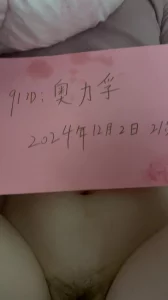 91ID：奥力孚
2024年12月2日 21